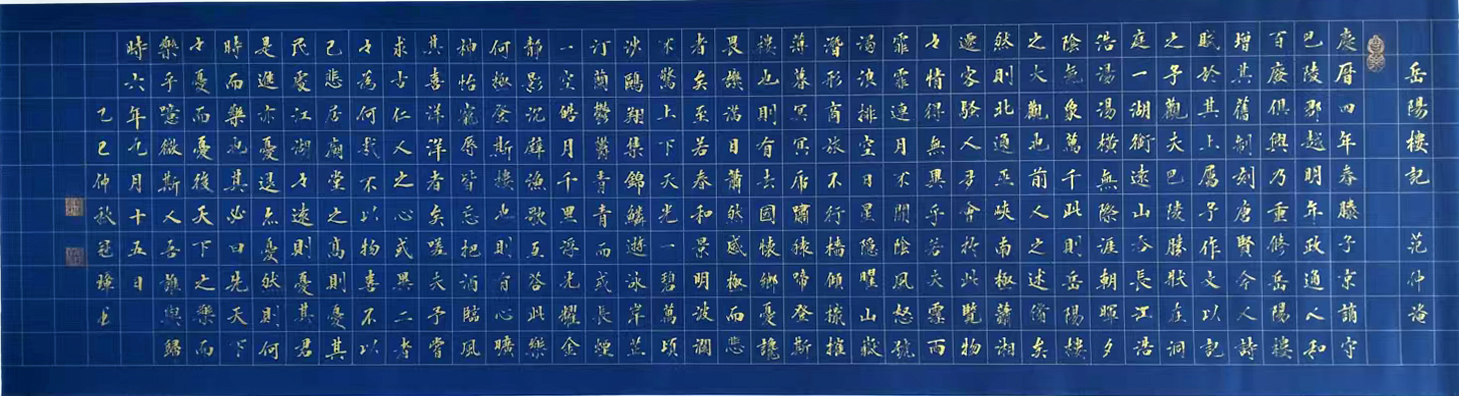 岳陽樓記 范仲淹
慶曆四年春滕子京謫守
巴陵郡越明年政通人和
百廢俱興乃重修岳陽樓
增其舊制刻唐賢今人詩
賦於其上屬予作文以記
之予觀夫巴陵勝狀在洞
庭一湖銜遠山吞長江浩
浩湯湯橫無際涯朝暉夕
陰氣象萬千此則岳陽樓
之大觀也前人之述備矣
然則北通巫峽南極瀟湘
遷客騷人多會於此覽物
々情得無異乎若夫霪雨
霏霏連月不開陰風怒號
濁浪排空日星隱曜山嶽
潛形商旅不行檣傾檝摧
薄暮冥冥虎嘯猿啼登斯
樓也則有去國懷鄉憂讒
畏譏滿目蕭然感極而悲
者矣至若春和景明波瀾
不驚上下天光一碧萬頃
沙鷗翔集錦鱗遊泳岸芷
汀蘭鬱鬱青青而或長煙
一空皓月千里浮光耀金
靜影沉璧漁歌互答此樂
何極登斯樓也則有心曠
神怡寵辱皆忘把酒臨風
其喜洋洋者矣嗟夫予嘗
求古仁人之心或異二者
々為何哉不以物喜不以
己悲居廟堂之高則憂其
民處江湖々遠則憂其君
是進亦憂退亦憂然則何
時而樂也其必曰先天下
々憂而憂後天下之樂而
樂乎噫微斯人吾誰與歸
時六年九月十五日
乙巳仲秋